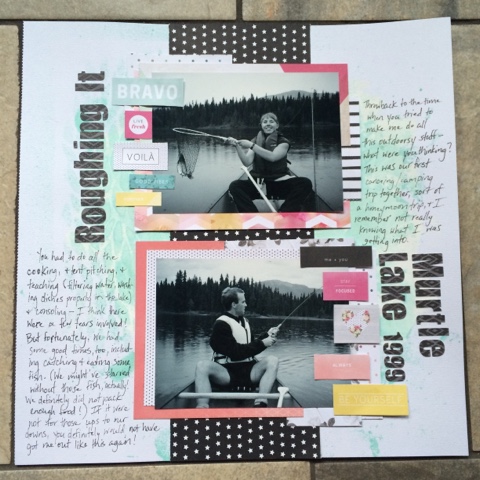 Roughing It
BRAVO
LIVE
fresh
VOILÀ
Throwback to the time
when you tried to
make me do all
this outdoorsy stuff-
what were you thinking?
This was our first
canoeing, camping
trip together, sort of
a honeymoon trip, & I
remember not really
knowing what I was
getting into.
me + you
ALWAYS
Murtle
Lake 1999
You had to do all the
cooking, & tent pitching, &
teaching (filtering water, wash-
ing dishes properly in the lake)
& consoling - I think there
were a few tears involved!
But fortunately, we had
some good times, too, includ-
ing catching & eating some
fish. (We might've starved
without those fish, actually!
We definitely did not pack
enough food!) If it were
not for those ups to our
downs, you definitely would not have
got me out like this again!